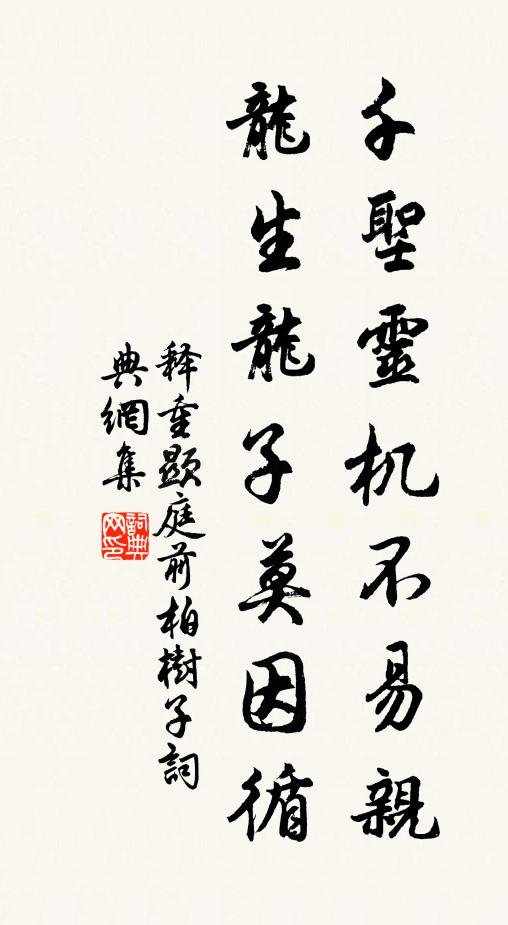 千聖靈机不易親
龍生龍子莫因循
释重顯庭前柏樹子詞
典網集
詞典網印